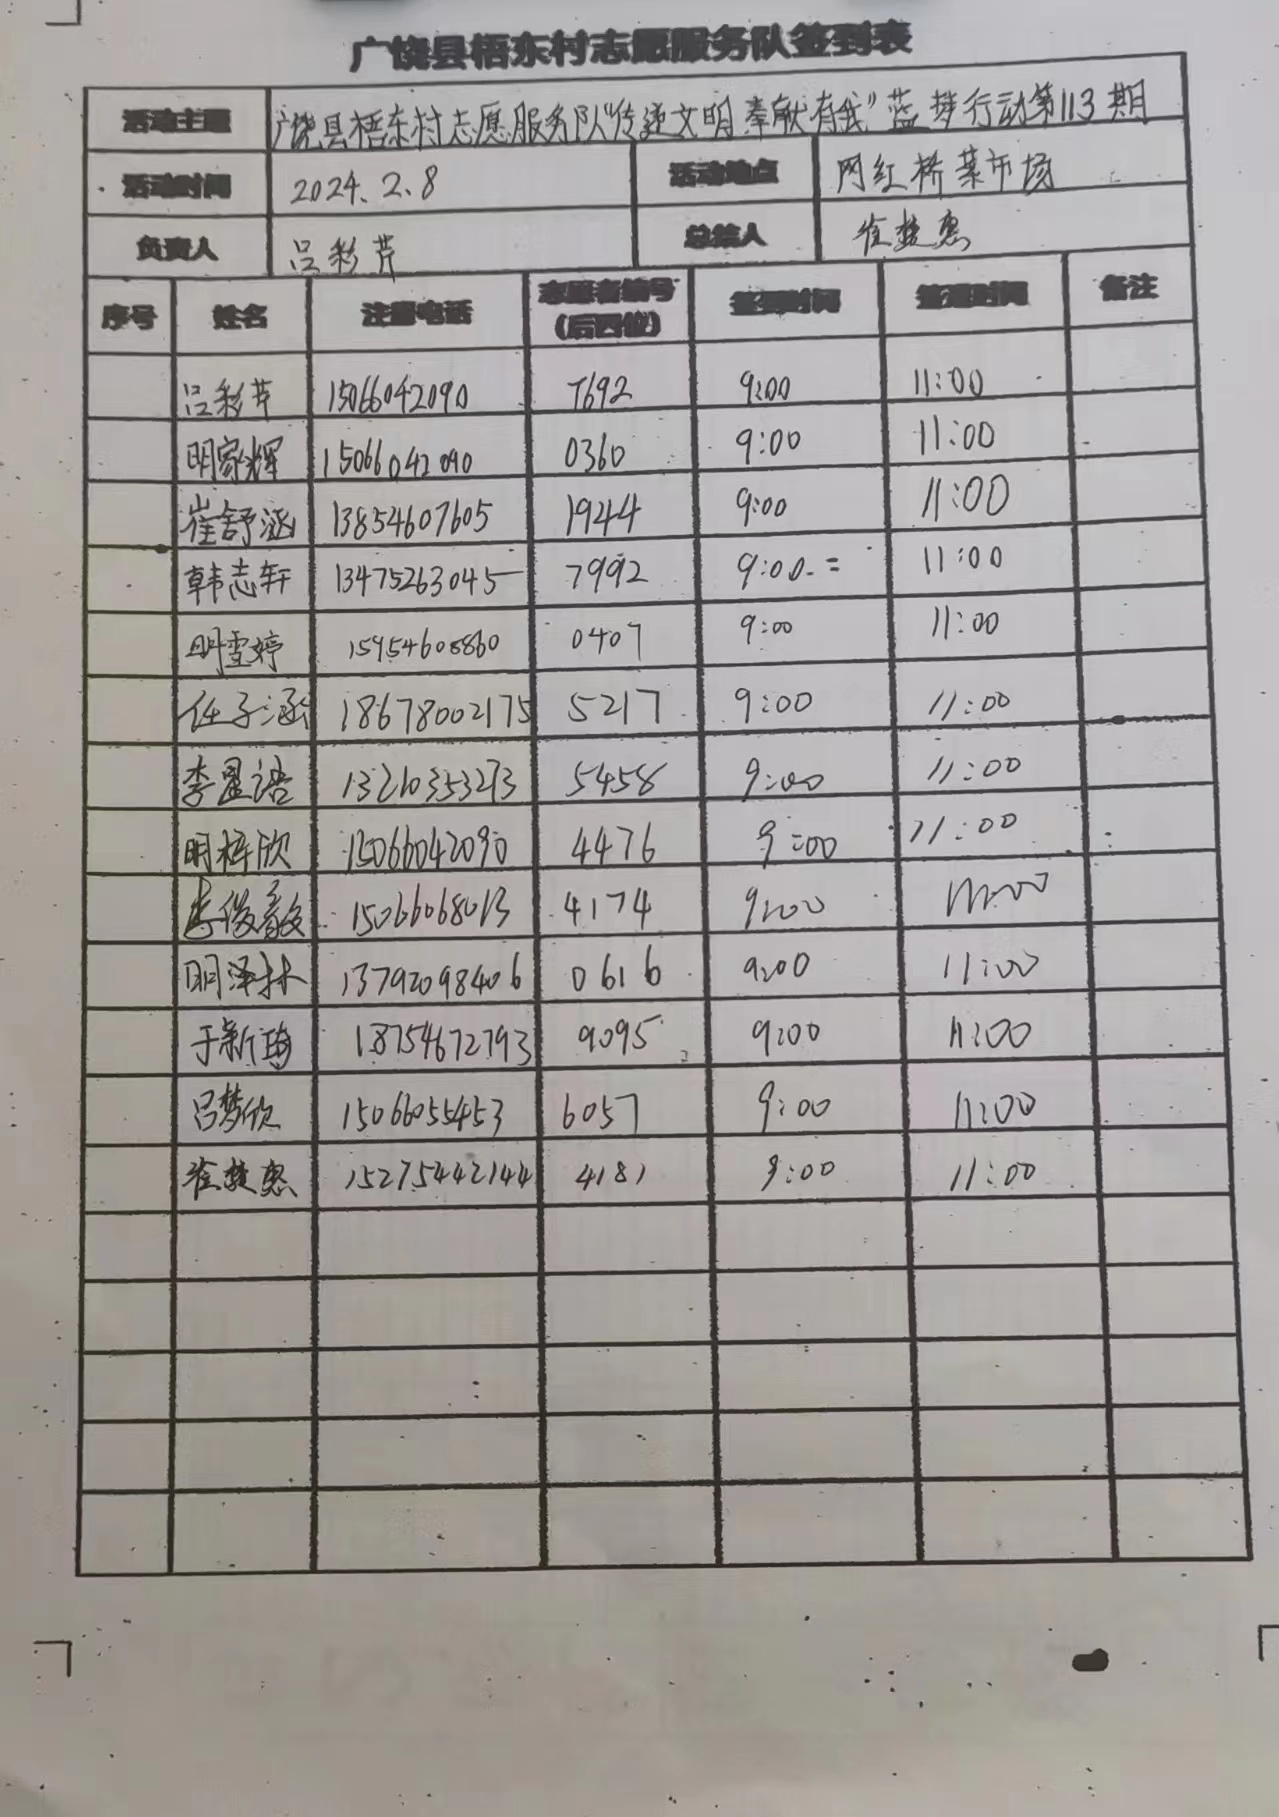 广饶县梧东村志愿服务队签到表
活动主题 广饶县梧东村志愿服务队“传递文明 奉献有我”蓝梦行动第113期
活动时间 2024.2.8 活动地点 网红桥菜市场
负责人 吕彩芹 总结人 崔楚惠
序号 姓名 注册电话 志愿者编号(后四位) 签到时间 签退时间 备注
吕彩芹 15066042090 7692 9:00 11:00
明家辉 15066042090 0360 9:00 11:00
崔舒涵 13854607605 1944 9:00 11:00
韩志轩 13475263045 7992 9:00 11:00
明雪婷 15954608860 0407 9:00 11:00
任子涵 18678002175 5217 9:00 11:00
李昱诺 13210353273 5458 9:00 11:00
明梓欣 15066042090 4476 9:00 11:00
李俊毅 15066068013 4174 9:00 11:00
明泽林 13792098406 0616 9:00 11:00
于新 18754672793 9095 9:00 11:00
吕梦欣 15066055453 6057 9:00 11:00
崔楚惠 15275442144 4181 9:00 11:00